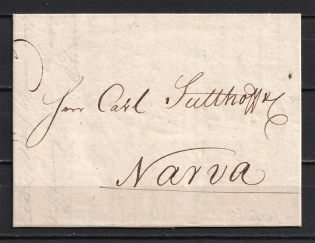 Herr Carl Sutthoff
Narva